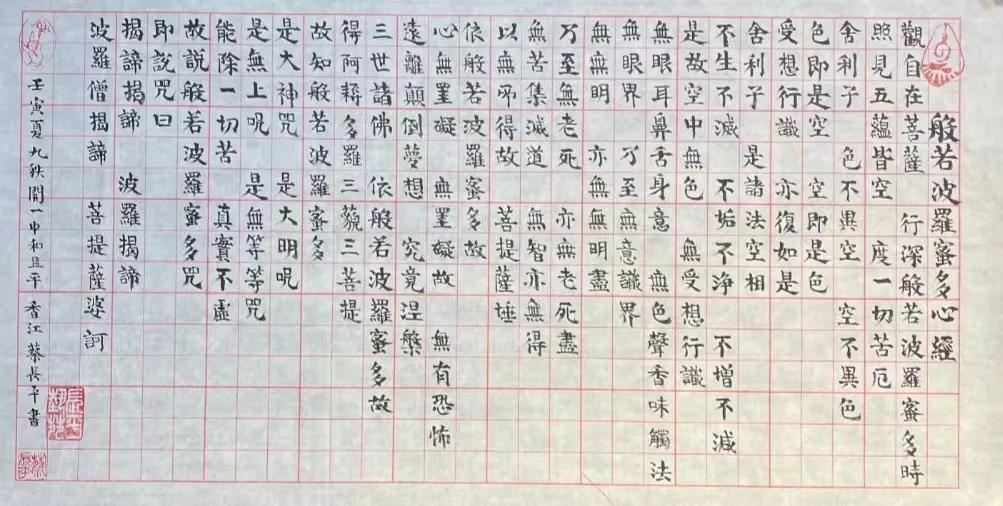 般若波羅蜜多心經
觀自在菩薩 行深般若波羅蜜多時
照見五蘊皆空 度一切苦厄
舍利子 色不異空 空不異色
色即是空 空即是色
受想行識 亦復如是
舍利子 是諸法空相
不生不滅 不垢不淨 不增不減
是故空中無色 無受想行識
無眼耳鼻舌身意 無色聲香味觸法
無眼界 乃至無意識界
無無明 亦無無明盡
乃至無老死 亦無老死盡
無苦集滅道 無智亦無得
以無所得故 菩提薩埵
依般若波羅蜜多故
心無罣礙 無罣礙故 無有恐怖
遠離顛倒夢想 究竟涅槃
三世諸佛 依般若波羅蜜多故
得阿耨多羅三藐三菩提
故知般若波羅蜜多
是大神咒 是大明呪
是無上呪 是無等等咒
能除一切苦 真實不虛
故說般若波羅蜜多咒
即說咒曰
揭諦揭諦 波羅揭諦
波羅僧揭諦 菩提薩婆訶
壬寅夏九秩開一中和且平 香江蔡長平書